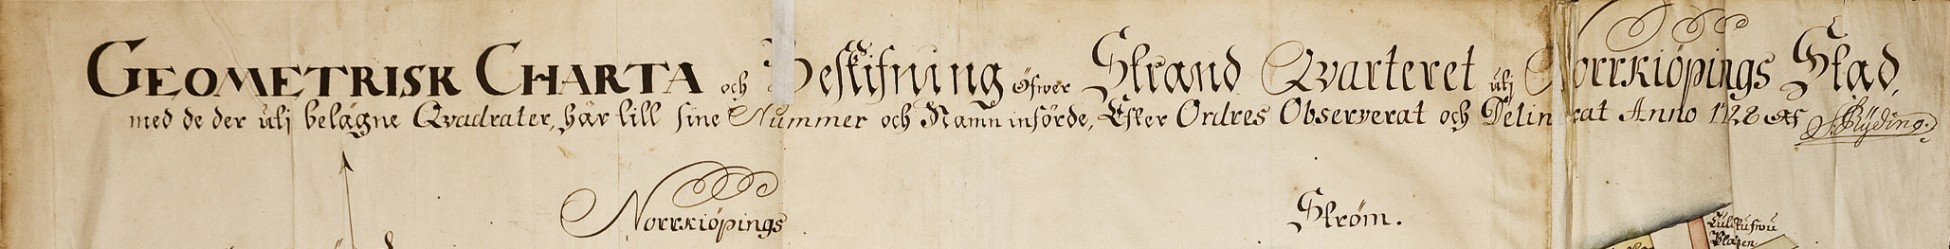 GEOMETRISK CHARTA och Beskifning öfwer Strand Qvarteret utj Norrkiöpings Stad,
med de der utj belägne Qvadrater, här till sine Nummer och Namn införde, Efter Ordres Observerat och Delinieat Anno 1728 af S: Rÿding.
Norrkiöpings Ström.
Platzen